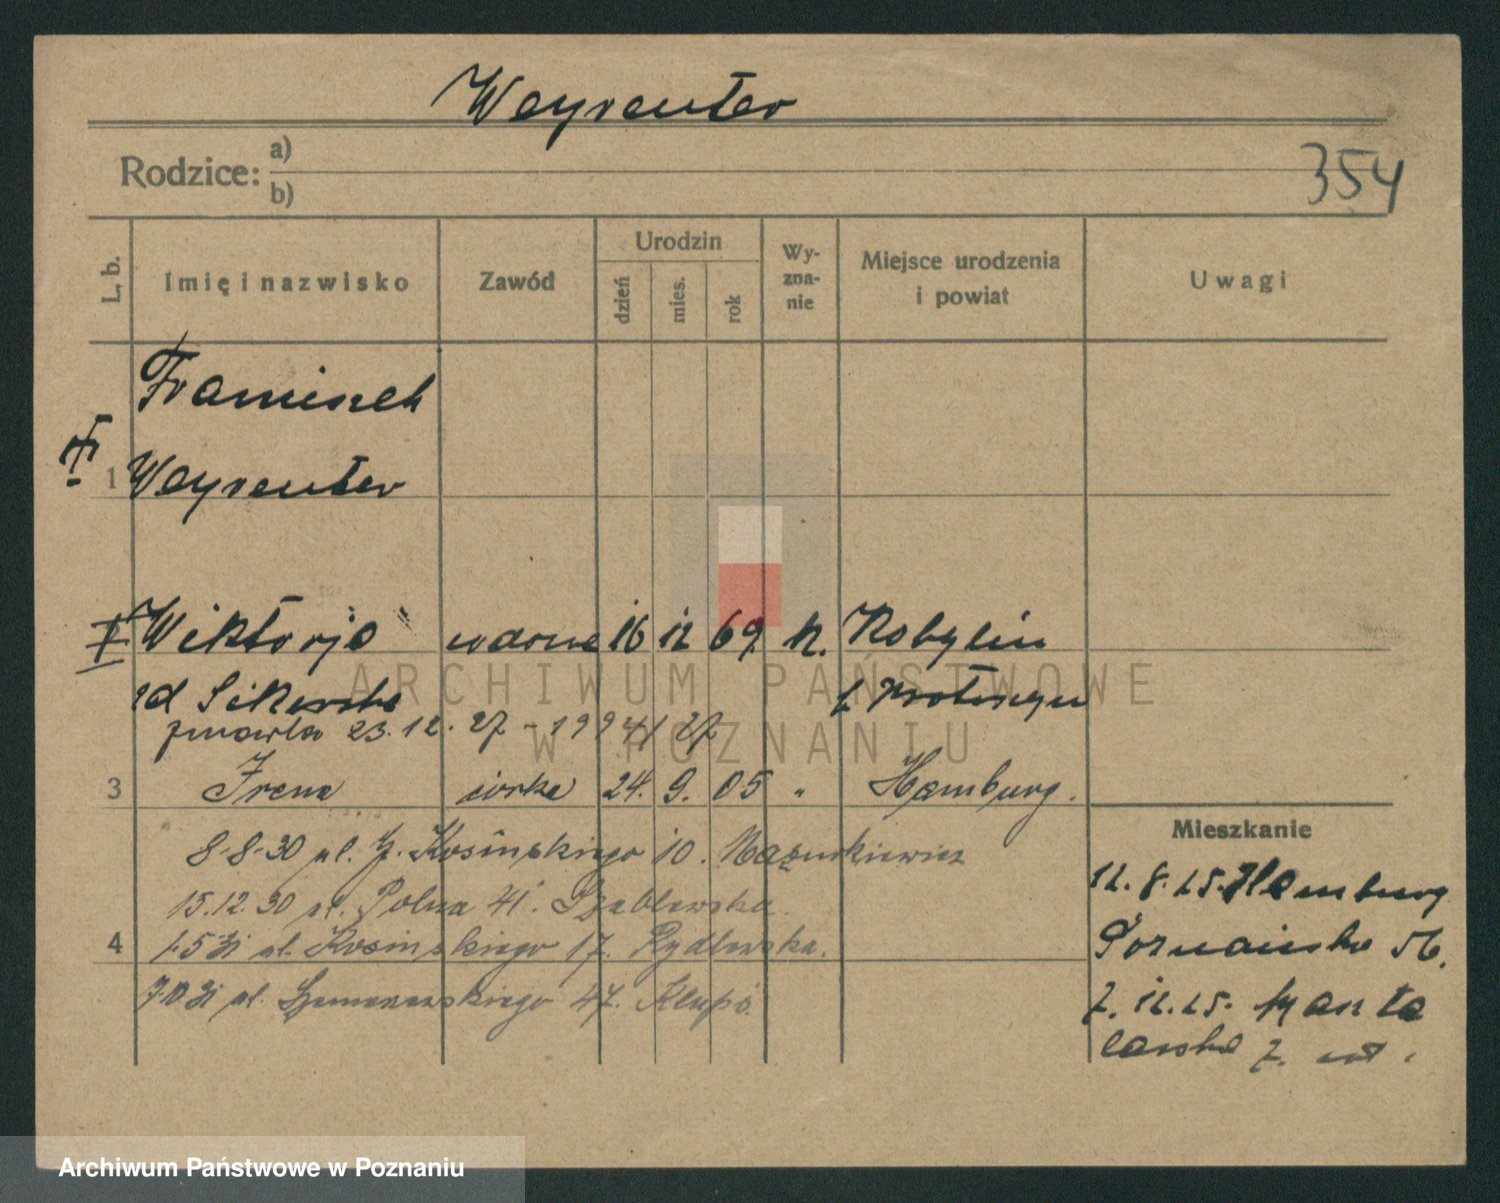 Weyrauter
Rodzice: a)
b)
354
L. b.
Imię i nazwisko
Zawód
Urodzin
dzień
mies.
rok
Wy-
zna-
nie
Miejsce urodzenia
i powiat
Uwagi
Franciszek
1 Weyrauter
Wiktorja wdowa 16 12 69 k. Kobylin
zd Sikorska p. Krotoszyn
zmarła 23.12.27 - 1994/27
3 Irena córka 24. 9. 05 " Hamburg.
8-8-30 ul. J. Kosińskiego 10. Mazurkiewicz
15.12.30 ul. Polna 41. Szablewska.
4 1.5 31 ul. Kosińskiego 17. Rydlewska.
7.10 31 ul. Szamarzewskiego 47.
Mieszkanie
12.8.25. Hamburg
Poznańska 56.
7.12.25. Maszta
larska 7.
ARCHIWUM PAŃSTWOWE
W POZNANIU
Archiwum Państwowe w Poznaniu